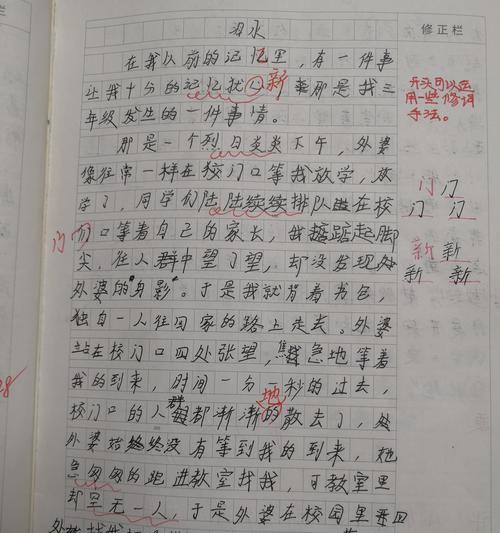 泪水
修正栏
在我以前的记忆里，有一件事
让我十分的记忆犹新 那是我三
年级发生的一件事情。
开头可以运
用一些修词
手法。
那是一个烈日炎炎下午，外婆
像往常一样在校门口等我放学，放
学了，同学们陆陆续续排队在校
门口等着自己的家长，我踮起脚
尖，往人群中望了望，却没发现
外婆的"身影"。于是我就背着书包，
独自一人往回家的路上走去。外婆
站在校门口四处张望，焦急地等着
我的到来，时间一分一秒的过去，
校门口的人群都渐渐的散去了，
外婆始终没有等到我的到来，她
急匆匆的跑进教室找我，可教室里
却空无一人，于是外婆在校园里四
门 门
门 门
新 新
新 新
门
地